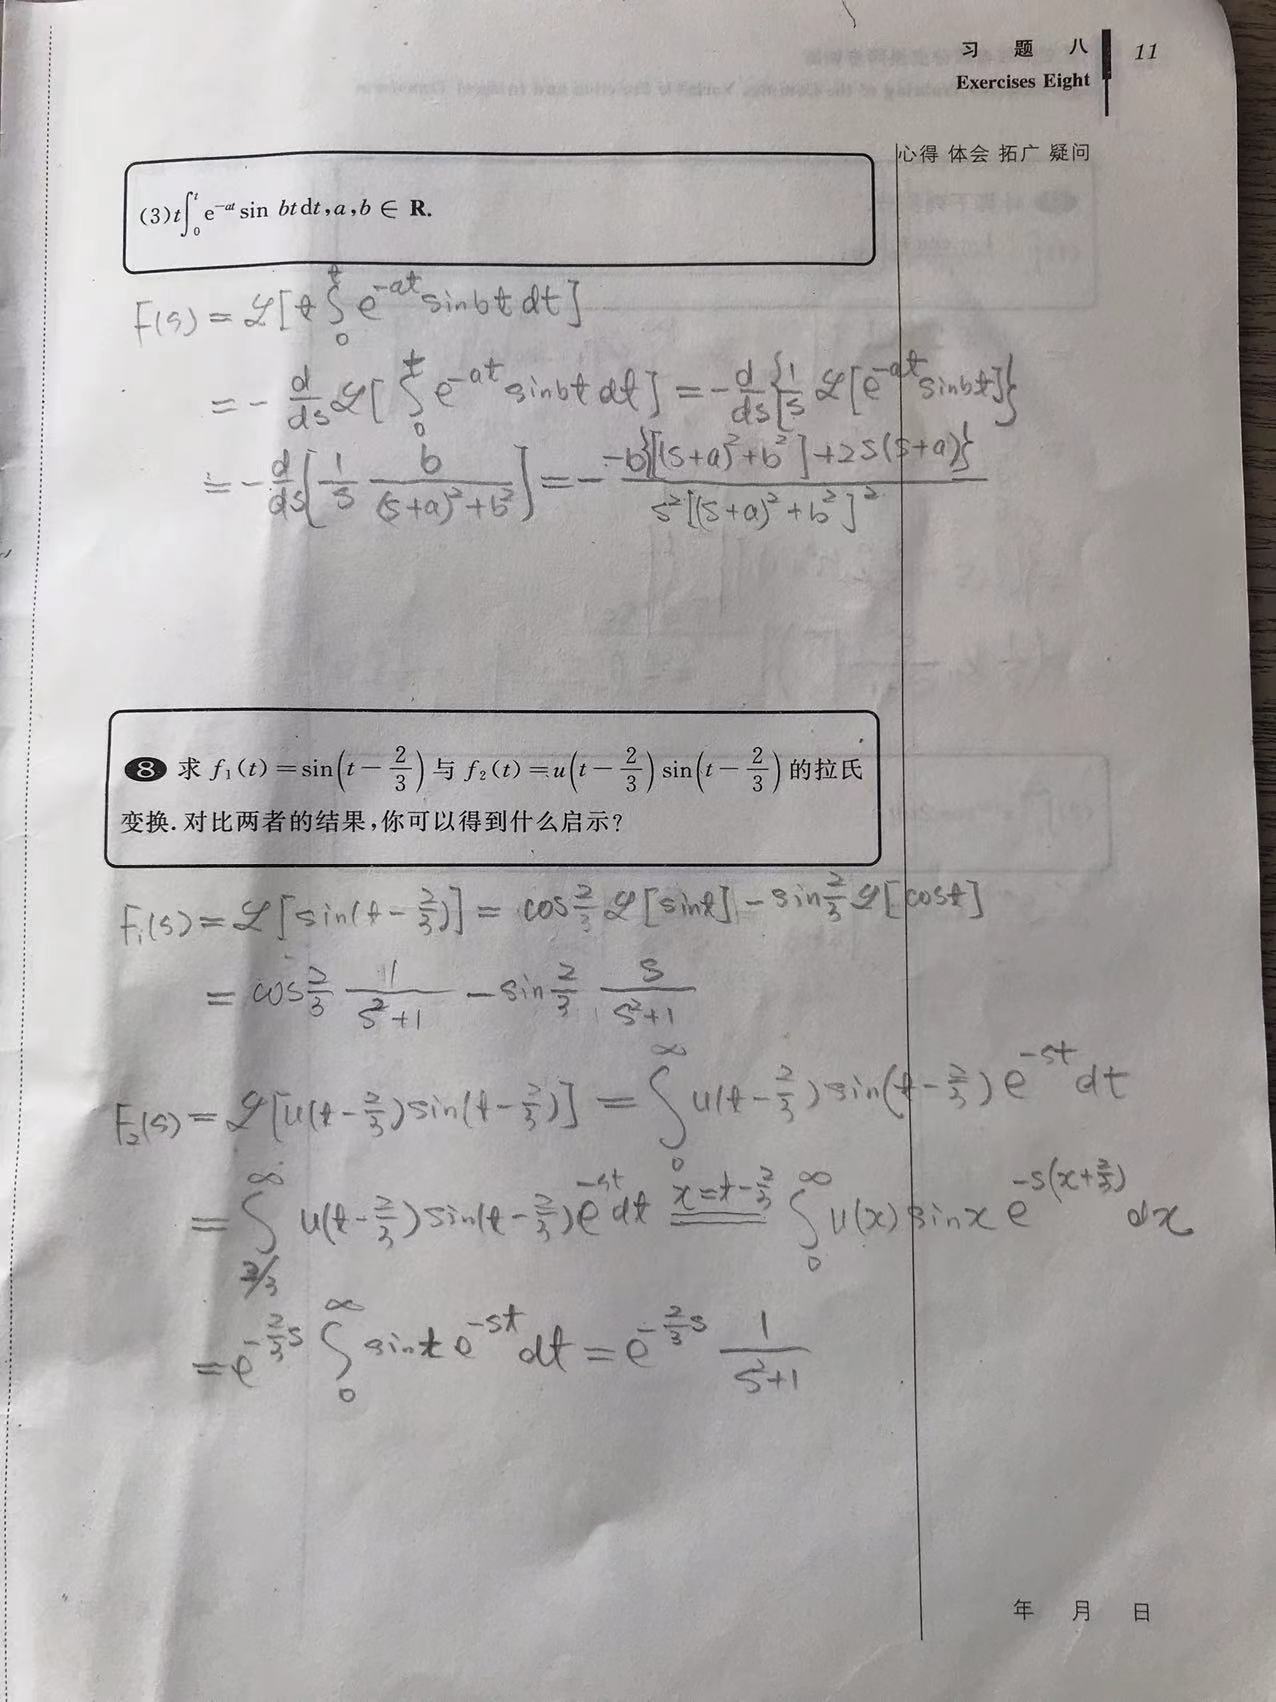 习 题 八 11
Exercises Eight
心得 体会 拓广 疑问
(3) t∫₀ᵗ e⁻ᵃᵗ sin bt dt, a, b ∈ R.
F(s) = ℒ[t ∫₀ᵗ e^{-at} sinbt dt]
= - d/ds ℒ[∫₀ᵗ e^{-at} sinbt dt] = - d/ds {1/s ℒ[e^{-at} sinbt]}
= - d/ds [1/s b/((s+a)²+b²)] = - (-b{[(s+a)²+b²]+2s(s+a)})/(s²[(s+a)²+b²]²)
8 求 f₁(t) = sin(t - 2/3) 与 f₂(t) = u(t - 2/3) sin(t - 2/3) 的拉氏
变换. 对比两者的结果, 你可以得到什么启示?
F₁(s) = ℒ[sin(t - 2/3)] = cos 2/3 ℒ[sint] - sin 2/3 ℒ[cost]
= cos 2/3 1/(s²+1) - sin 2/3 s/(s²+1)
F₂(s) = ℒ[u(t - 2/3) sin(t - 2/3)] = ∫₀^∞ u(t - 2/3) sin(t - 2/3) e^{-st} dt
= ∫_{2/3}^∞ u(t - 2/3) sin(t - 2/3) e^{-st} dt x=t-2/3 ∫₀^∞ u(x) sinx e^{-s(x+2/3)} dx
= e^{-2/3 s} ∫₀^∞ sint e^{-st} dt = e^{-2/3 s} 1/(s²+1)
年 月 日